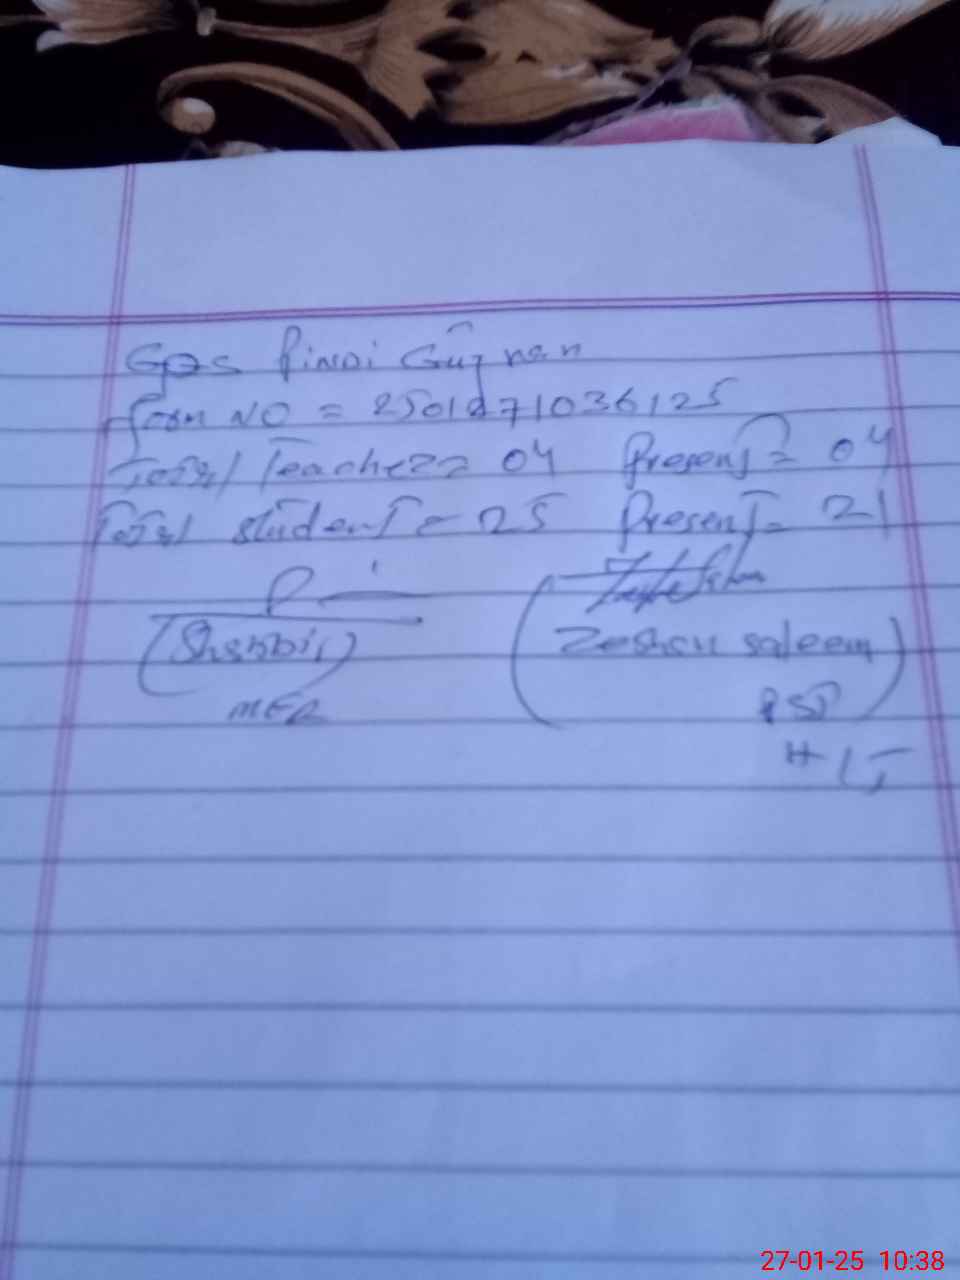 GPS Pindi Gujran
form NO = 2501271036125
Total Teacher = 04 Present = 04
Total student = 25 Present = 21
(Shabbir) (Zeshan saleem)
MEA PST
27-01-25 10:38